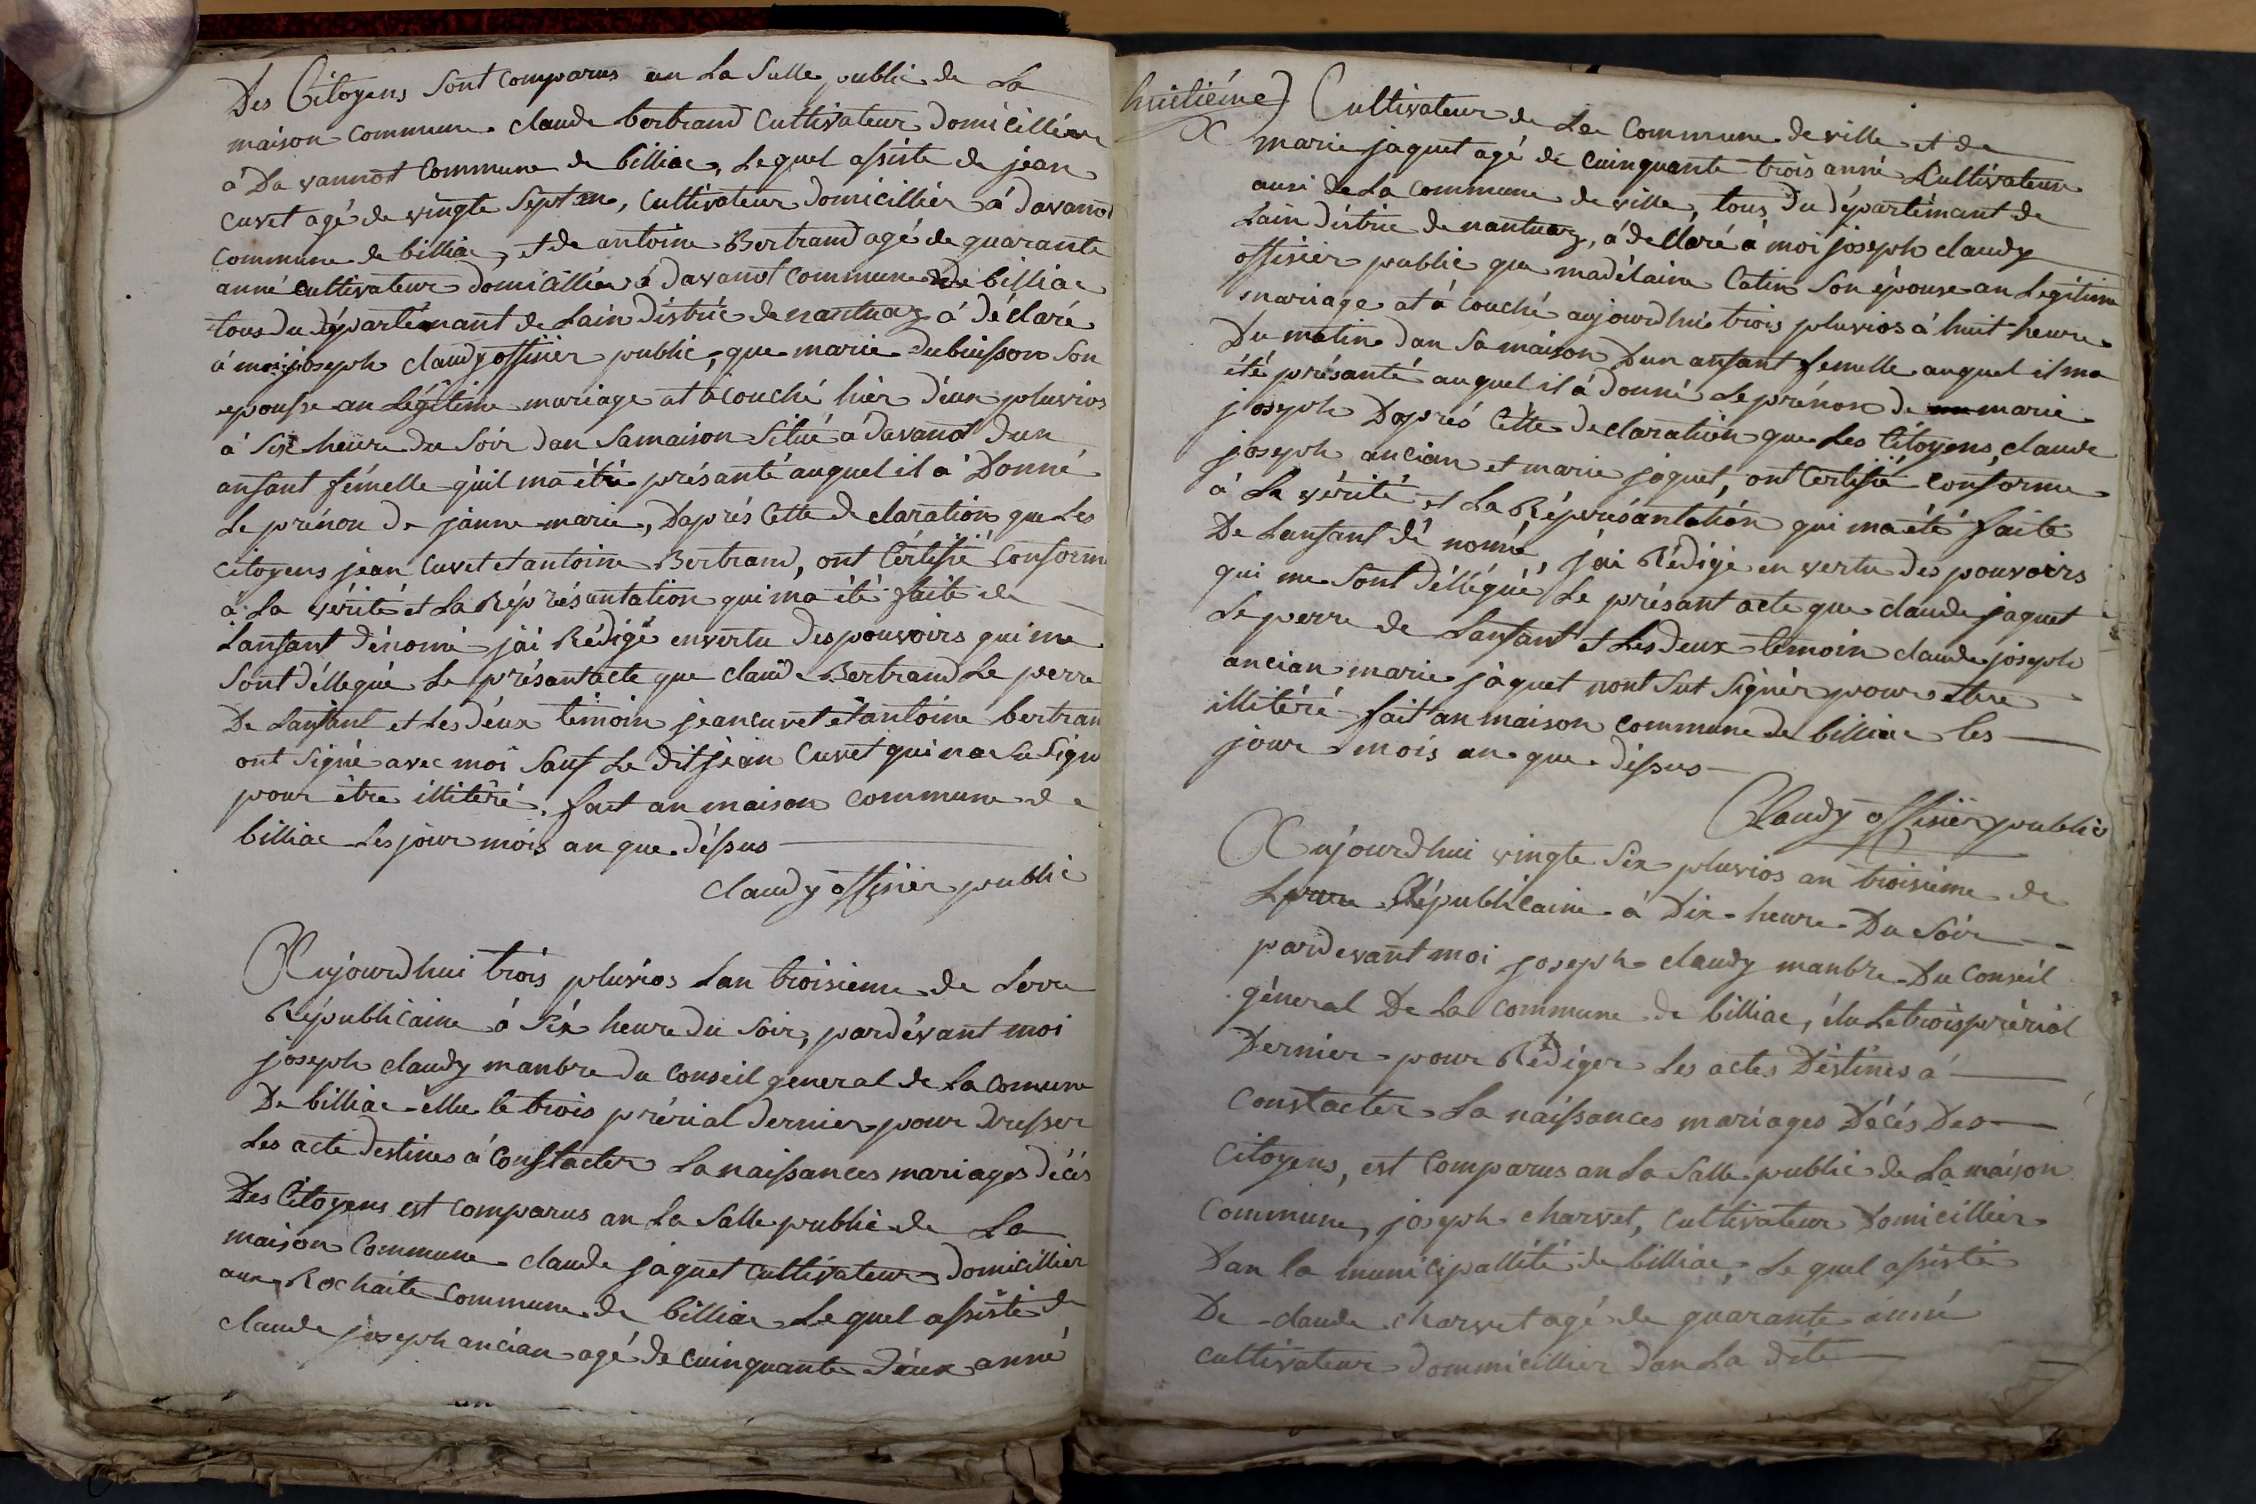 Des Citoyens sont comparus an La Salle public de La
maison commune claude bertrand Cultivateur domicillié
à Davannot commune de billiac, Lequel assisté de jean
Cuvet agé de vingte Sept, Cultivateur domicillier à davanot
commune de billiac, et de antoine Bertrand agé de quarante
anné cultivateur domicillier à davanot commune de billiac
tous du département de Lain Distric de nantuaz à déclaré
à moi joseph claudy offisier public, que marie dubuisson Son
epousse an Légitime mariage at acouché hier déux pluvios
à Six heure du Soir dan Samaison Situé à davanot dun
ansant fémelle quil ma été présanté auquel il à Donné
Le prénon de janne marie, Daprés Cette declaration que Les
Citoyens jean Cuvet et antoine Bertrand, ont Cértifié Conforme
à La vérité et La Réprésantation qui ma été faite de
Lansant dénomé jai Rédigé envertu des pouvoirs qui me
Sont déllegué Le présantacte que claude Bertrand Le perre
De Lansant et Les déux témoin jean cuvet et antoine bertran
ont Signé avec moi Sauf Le dit jean Cuvet qui na Su Signé
pour être illitéré. fait an maison commune de
billiac Les jour mois an que déssus
claudy offisier public
Aujourdhui trois pluvios Lan troisieme de Lerre
Républicaine à Six heure du Soir, pardévant moi
joseph claudy manbre du Conseil general de La Comune
De billiac ellu le trois prérial dernier pour dresser
Les acte destines à Constacter La naissances mariages décés
Des Citoyens est comparus an La Salle public de La
maison Commune claude jaquet Cultivateur domicillier
aux Rochaite commune de billiac Lequel assisté de
claude joseph ancian agé de cuinquante déux anné
huitiéme) Cultivateur de La Commune de ville et de
marie jaquet agé de cuinquante trois anné Cultivateur
ausi de La commune de ville, tous du département de
Lain distric de nantuaz, à déllaré à moi joseph claudy
offisier public que madélaine Catin Son épouse an Legitime
mariage at à couché aujourdhui trois pluvios à huit heure
Du matin dan Sa maison Dun ansant femelle auquel il ma
été présanté auquel il à donné Le prénon de marie
joseph Daprés Cétte declaration que Les Citoyens, claude
joseph ancian et marie jaquet, ont Cértifié Conforme
à La vérité et La Réprésantation qui ma été faite
De Lansant dé nomé, jai Rédigé en vertu des pouvoirs
qui me Sont déllégué Le présant acte que claude jaquet
Le perre de Lansant et Les deux témoin claude joseph
ancian marie jàquet nont Sut Signér pour etre
illitéré fait an maison commune de billiac les
jour mois an que déssus
Claudy offisier public
Aujourdhui vingte Six pluvios an troisieme de
Républicaine à Dix heure Du Soir
pardevant moi joseph claudy manbre Du Conseil
géneral De La commune de billiac, élu Le trois prérial
Dernier pour Rédiger Les actes Déstinés à
Constacter La naissances mariages Décés Des
Citoyens, est Comparus an La Salle public de La maison
Commune, joseph charvet, Cultivateur Domicillier
Dan la municipallité de billiac, Le quel assisté
De claude charvet agé de quarante anné
cultivateur dommicillier dan La dite